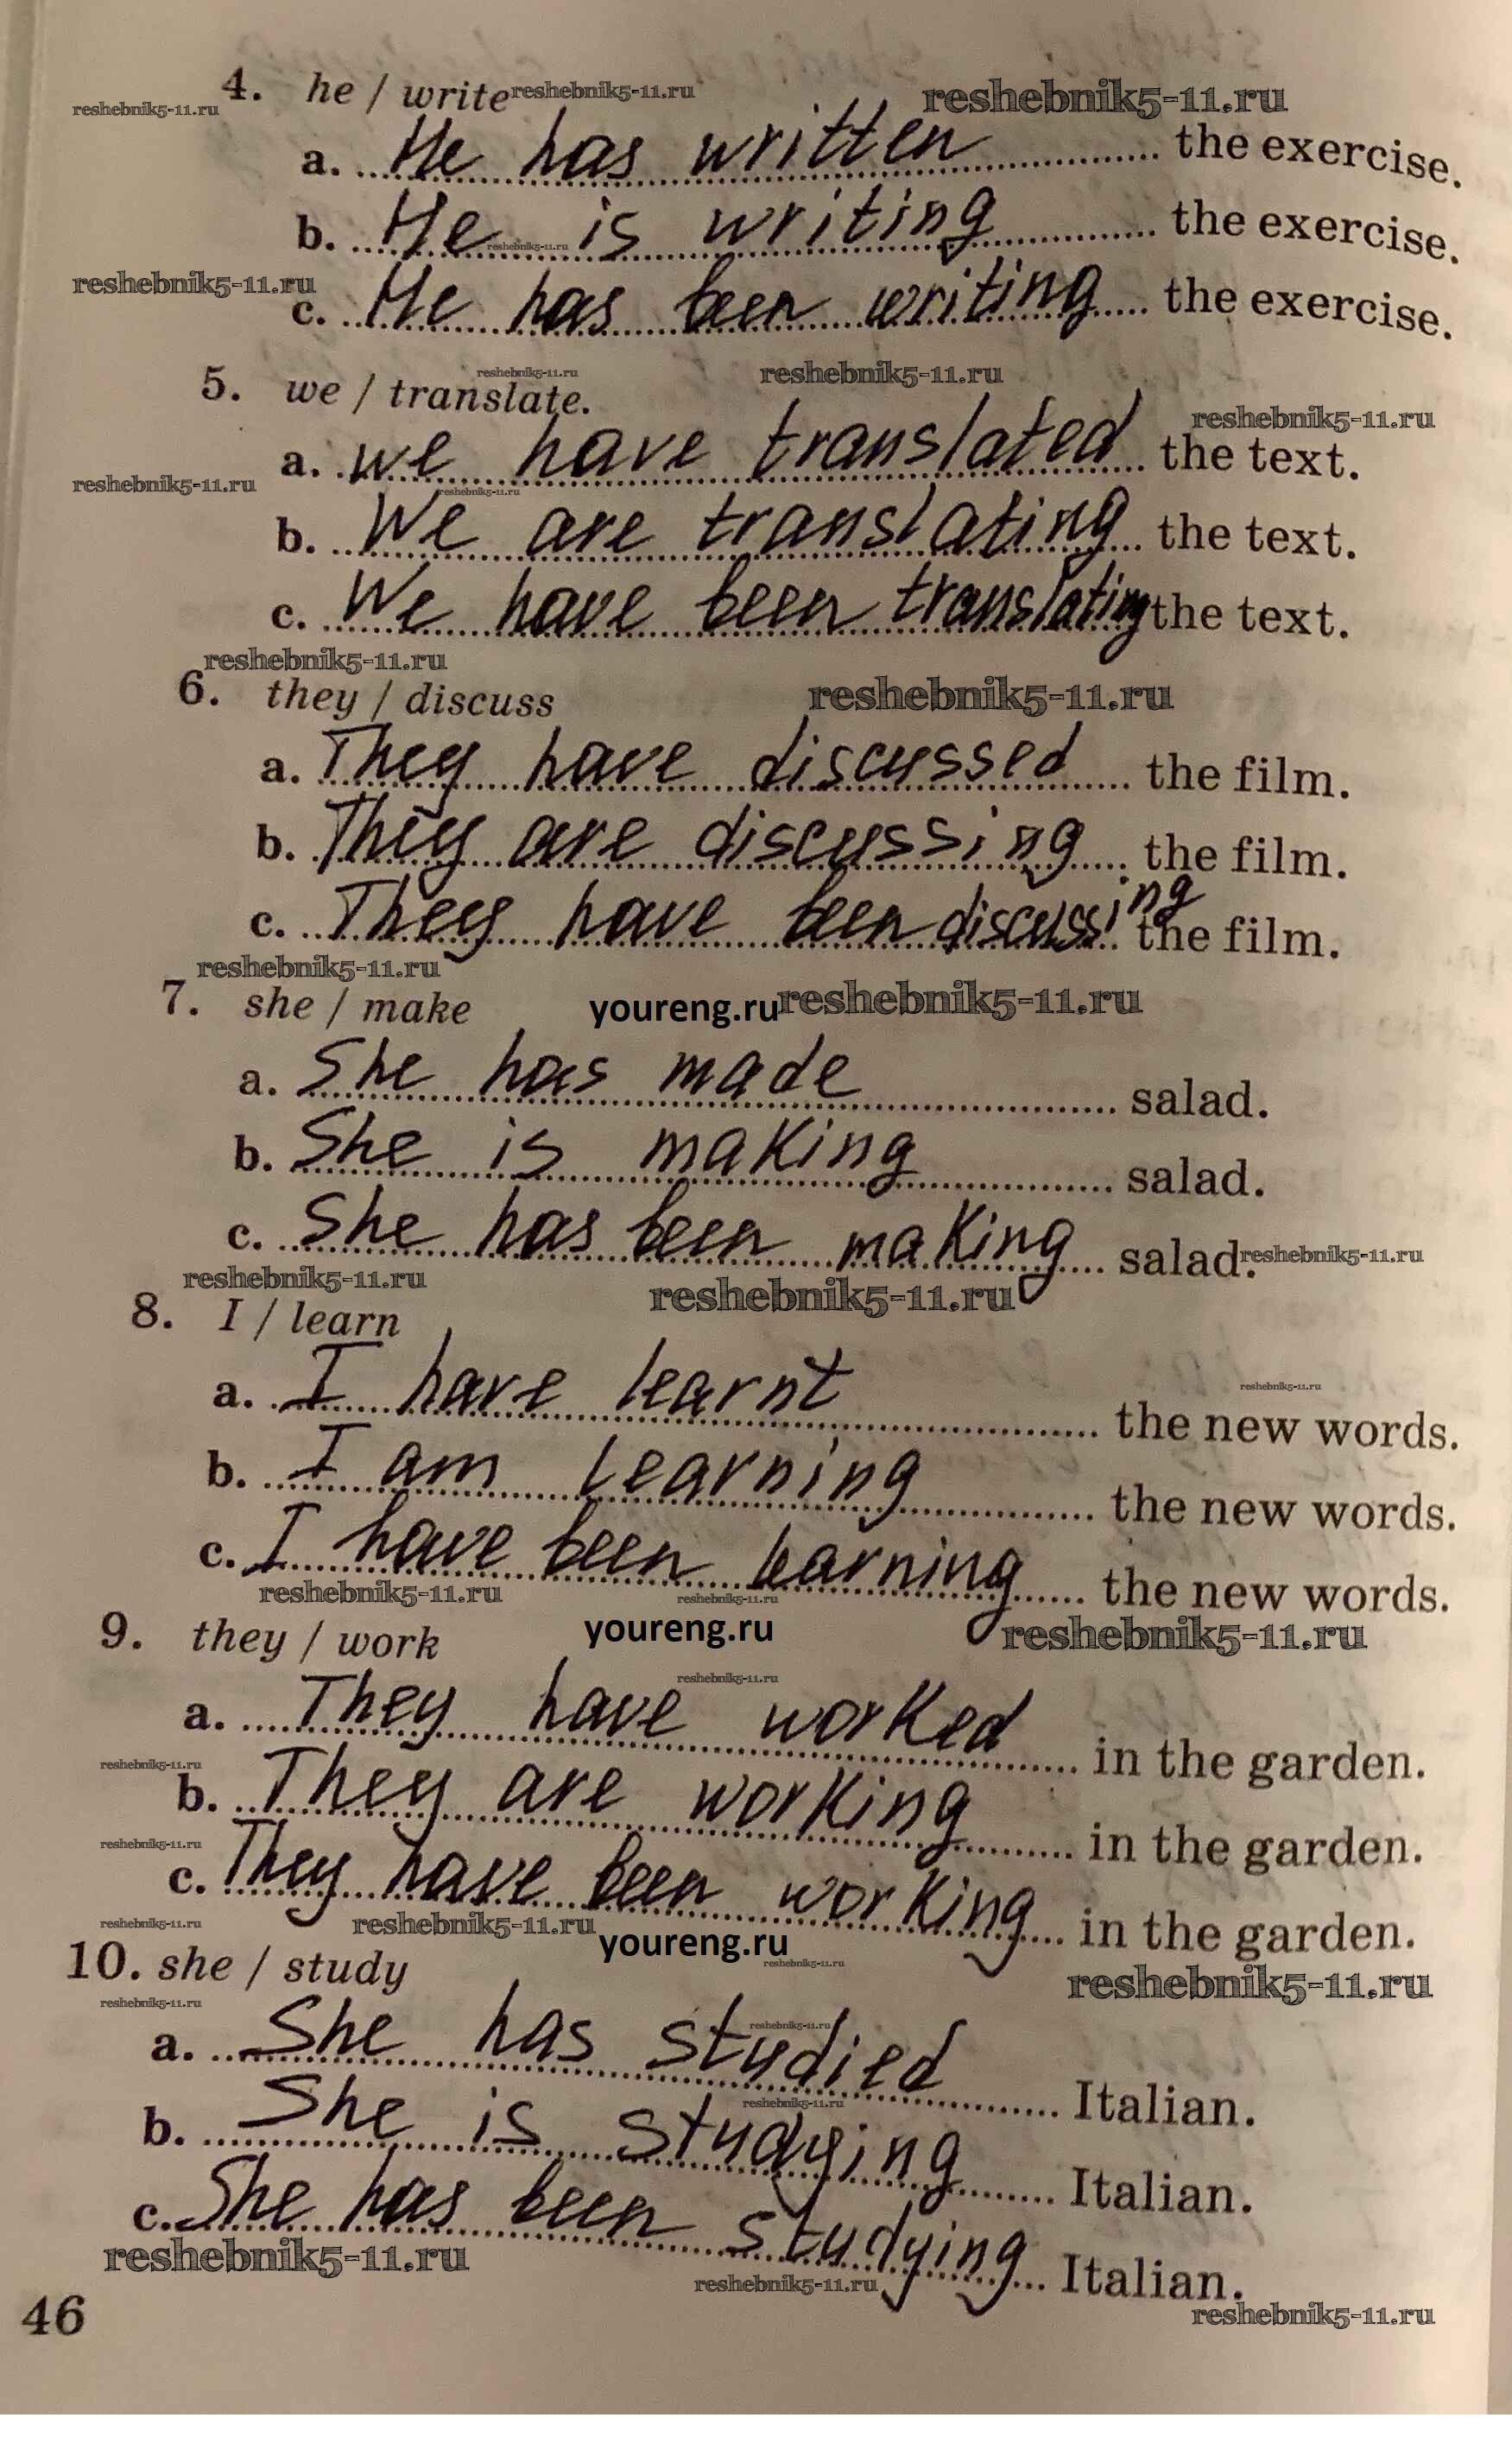 4. he / write reshebnik5-11.ru reshebnik5-11.ru
reshebnik5-11.ru
a. He has written the exercise.
b. He is writing the exercise.
reshebnik5-11.ru
reshebnik5-11.ru
c. He has been writing the exercise.
reshebnik5-11.ru reshebnik5-11.ru
5. we / translate.
reshebnik5-11.ru
a. we have translated the text.
reshebnik5-11.ru reshebnik5-11.ru
b. We are translating the text.
c. We have been translating the text.
reshebnik5-11.ru
6. they / discuss reshebnik5-11.ru
a. They have discussed the film.
b. They are discussing the film.
c. They have been discussing the film.
reshebnik5-11.ru
7. she / make youreng.ru reshebnik5-11.ru
a. She has made salad.
b. She is making salad.
c. She has been making salad. reshebnik5-11.ru
reshebnik5-11.ru reshebnik5-11.ru
8. I / learn
a. I have learnt the new words.
reshebnik5-11.ru
b. I am learning the new words.
c. I have been learning the new words.
reshebnik5-11.ru reshebnik5-11.ru
9. they / work youreng.ru reshebnik5-11.ru
reshebnik5-11.ru
a. They have worked in the garden.
reshebnik5-11.ru
b. They are working in the garden.
reshebnik5-11.ru
c. They have been working in the garden.
reshebnik5-11.ru reshebnik5-11.ru youreng.ru
reshebnik5-11.ru
10. she / study reshebnik5-11.ru
reshebnik5-11.ru
reshebnik5-11.ru
a. She has studied Italian.
reshebnik5-11.ru
b. She is studying Italian.
c. She has been studying Italian.
reshebnik5-11.ru reshebnik5-11.ru
reshebnik5-11.ru
46